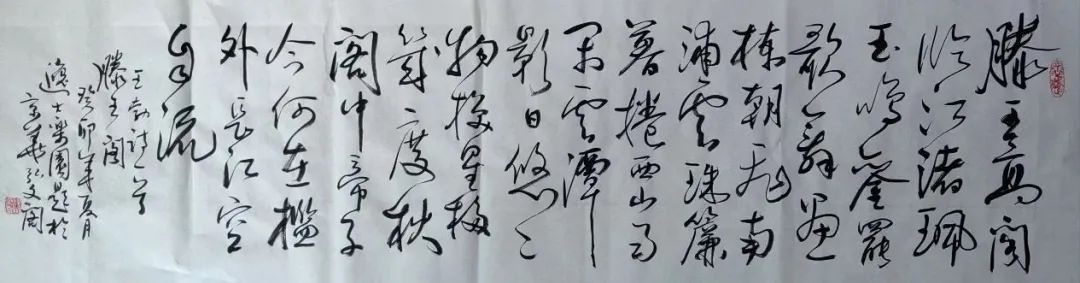 滕王高阁
临江渚珮
玉鸣鸾罢
歌舞画
栋朝飞南
浦云珠簾
暮捲西山雨
闲云潭
影日悠々
物换星移
幾度秋
阁中帝子
今何在槛
外长江空
自流
王勃诗一首
滕王阁
癸卯年夏月
士樂園题於
京华弘文阁